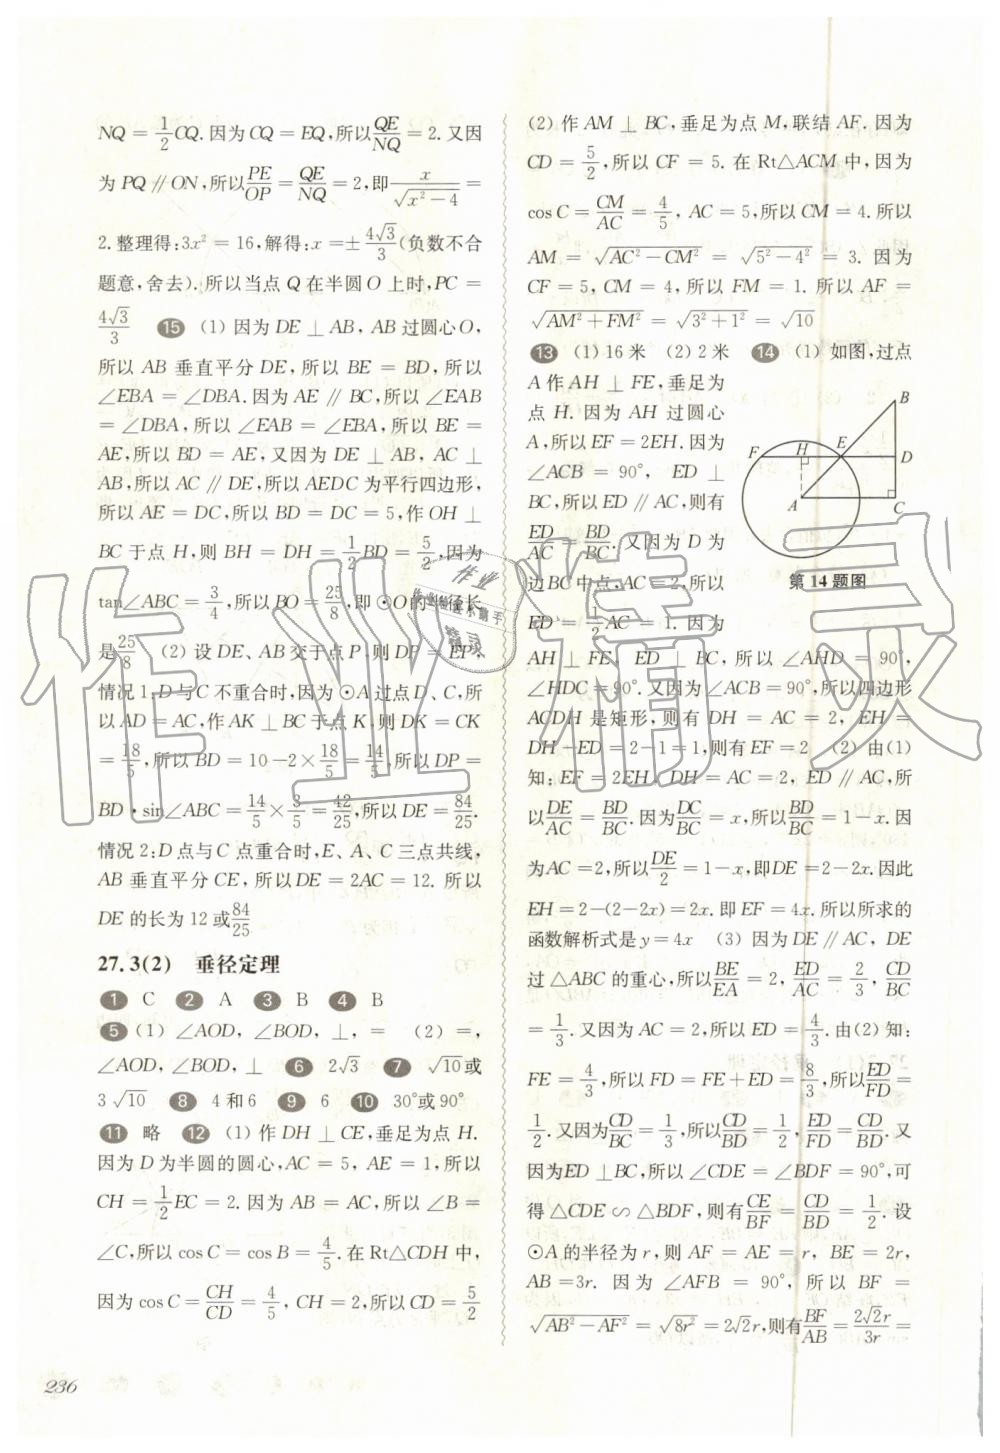 NQ = 1/2 CQ. 因为 CQ = EQ, 所以 QE/NQ = 2. 又因
为 PQ∥ON, 所以 PE/OP = QE/NQ = 2, 即 x/√(x²-4) =
2. 整理得: 3x² = 16, 解得: x = ± 4√3/3 (负数不合
题意, 舍去). 所以当点 Q 在半圆 O 上时, PC =
4√3/3 15 (1) 因为 DE ⊥ AB, AB 过圆心 O,
所以 AB 垂直平分 DE, 所以 BE = BD, 所以
∠EBA = ∠DBA. 因为 AE ∥ BC, 所以 ∠EAB
= ∠DBA, 所以 ∠EAB = ∠EBA, 所以 BE =
AE, 所以 BD = AE, 又因为 DE ⊥ AB, AC ⊥
AB, 所以 AC ∥ DE, 所以 AEDC 为平行四边形,
所以 AE = DC, 所以 BD = DC = 5, 作 OH ⊥
BC 于点 H, 则 BH = DH = 1/2 BD = 5/2, 因为
tan∠ABC = 3/4, 所以 BO = 25/8, 即 ⊙O 的半径长
是 25/8 (2) 设 DE、AB 交于点 P, 则 DP = EP,
情况 1: D 与 C 不重合时, 因为 ⊙A 过点 D、C, 所
以 AD = AC, 作 AK ⊥ BC 于点 K, 则 DK = CK
= 18/5, 所以 BD = 10 - 2 × 18/5 = 14/5, 所以 DP =
BD · sin∠ABC = 14/5 × 3/5 = 42/25, 所以 DE = 84/25.
情况 2: D 点与 C 点重合时, E、A、C 三点共线,
AB 垂直平分 CE, 所以 DE = 2AC = 12. 所以
DE 的长为 12 或 84/25
27.3(2) 垂径定理
1 C 2 A 3 B 4 B
5 (1) ∠AOD, ∠BOD, ⊥, = (2) =,
∠AOD, ∠BOD, ⊥ 6 2√3 7 √10 或
3√10 8 4 和 6 9 6 10 30°或 90°
11 略 12 (1) 作 DH ⊥ CE, 垂足为点 H.
因为 D 为半圆的圆心, AC = 5, AE = 1, 所以
CH = 1/2 EC = 2. 因为 AB = AC, 所以 ∠B =
∠C, 所以 cos C = cos B = 4/5. 在 Rt△CDH 中,
因为 cos C = CH/CD = 4/5, CH = 2, 所以 CD = 5/2
236
(2) 作 AM ⊥ BC, 垂足为点 M, 联结 AF. 因为
CD = 5/2, 所以 CF = 5. 在 Rt△ACM 中, 因为
cos C = CM/AC = 4/5, AC = 5, 所以 CM = 4. 所以
AM = √(AC² - CM²) = √(5² - 4²) = 3. 因为
CF = 5, CM = 4, 所以 FM = 1. 所以 AF =
√(AM² + FM²) = √(3² + 1²) = √10
13 (1) 16 米 (2) 2 米 14 (1) 如图, 过点
A 作 AH ⊥ FE, 垂足为
点 H. 因为 AH 过圆心
A, 所以 EF = 2EH. 因为
∠ACB = 90°, ED ⊥
BC, 所以 ED ∥ AC, 则有
ED/AC = BD/BC. 又因为 D 为
边 BC 中点, AC = 2, 所以
ED = 1/2 AC = 1. 因为
B
F H E D
A C
第 14 题图
AH ⊥ FE, ED ⊥ BC, 所以 ∠AHD = 90°,
∠HDC = 90°. 又因为 ∠ACB = 90°, 所以四边形
ACDH 是矩形, 则有 DH = AC = 2, EH =
DH - ED = 2 - 1 = 1, 则有 EF = 2 (2) 由 (1)
知: EF = 2EH, DH = AC = 2, ED ∥ AC, 所
以 DE/AC = BD/BC. 因为 DC/BC = x, 所以 BD/BC = 1 - x. 因
为 AC = 2, 所以 DE/2 = 1 - x, 即 DE = 2 - 2x. 因此
EH = 2 - (2 - 2x) = 2x. 即 EF = 4x. 所以所求的
函数解析式是 y = 4x (3) 因为 DE ∥ AC, DE
过 △ABC 的重心, 所以 BE/EA = 2, ED/AC = 2/3, CD/BC
= 1/3. 又因为 AC = 2, 所以 ED = 4/3. 由 (2) 知:
FE = 4/3, 所以 FD = FE + ED = 8/3, 所以 ED/FD =
1/2. 又因为 CD/BC = 1/3, 所以 CD/BD = 1/2, ED/FD = CD/BD. 又
因为 ED ⊥ BC, 所以 ∠CDE = ∠BDF = 90°, 可
得 △CDE ∽ △BDF, 则有 CE/BF = CD/BD = 1/2. 设
⊙A 的半径为 r, 则 AF = AE = r, BE = 2r,
AB = 3r. 因为 ∠AFB = 90°, 所以 BF =
√(AB² - AF²) = √(8r²) = 2√2r, 则有 BF/AB = 2√2r/3r =
作业精灵
作业
精灵